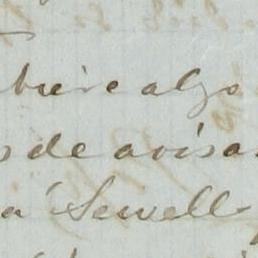 biere algo
s de avisa
a Sewell